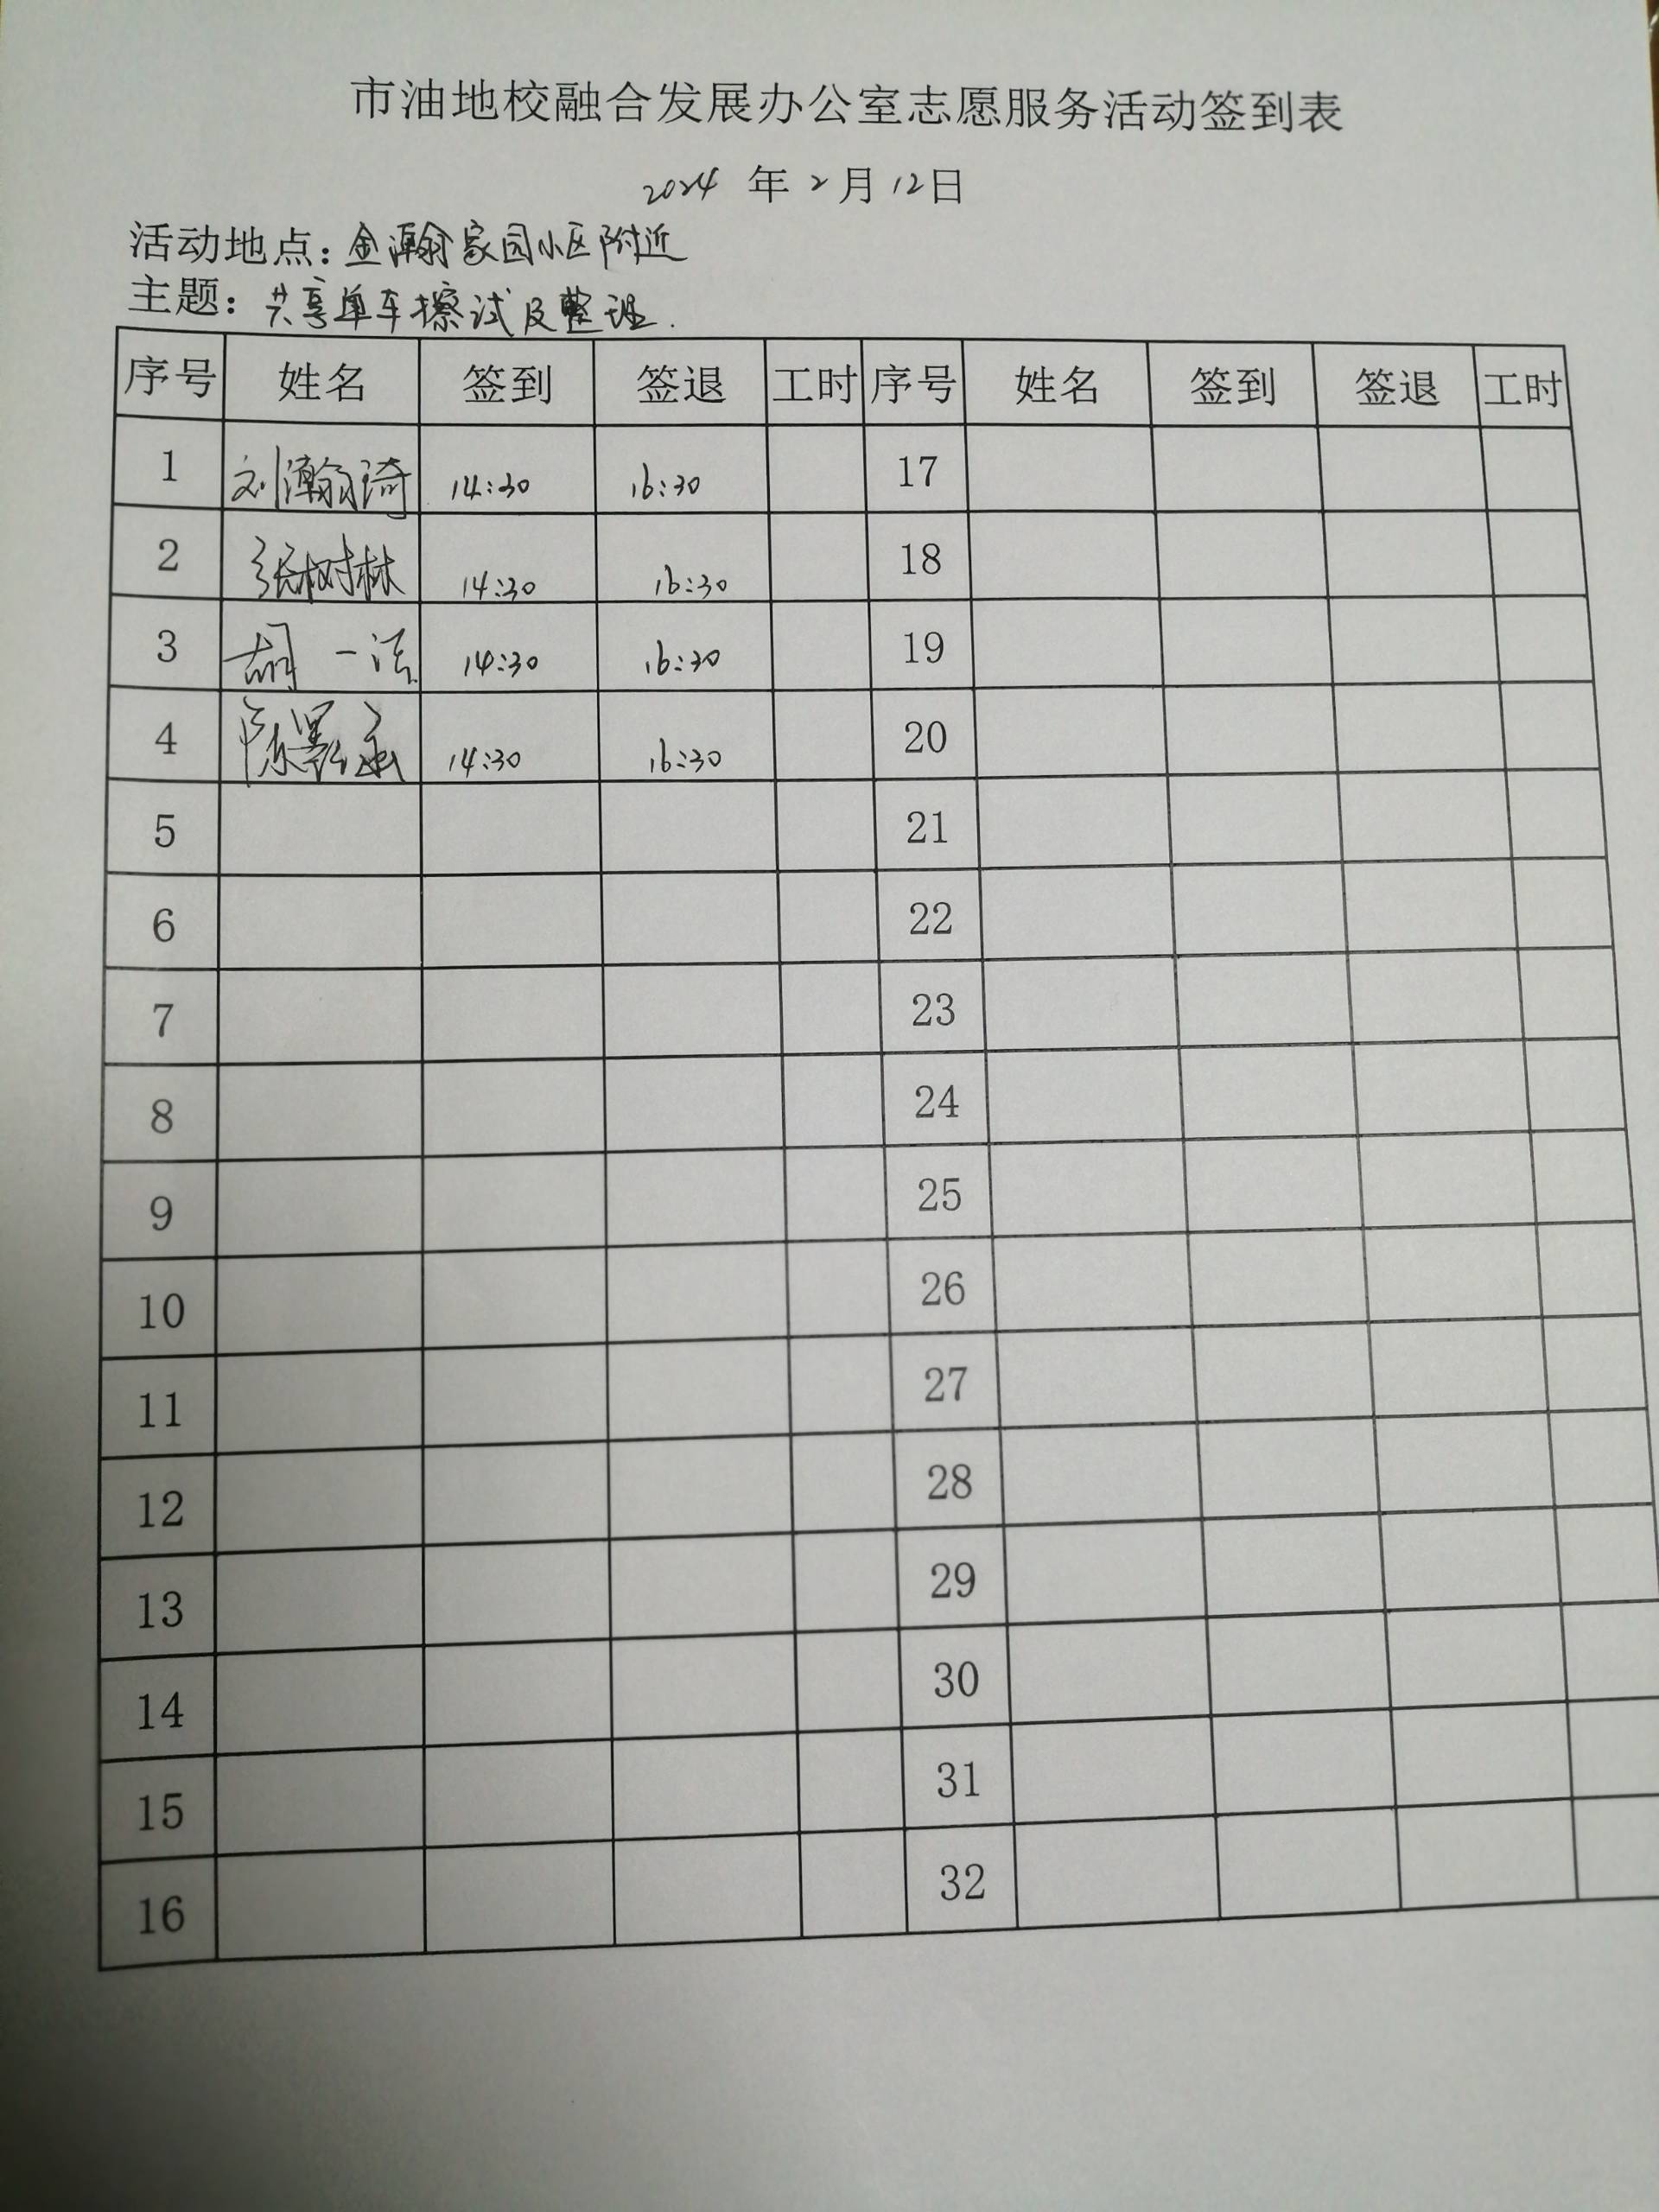 市油地校融合发展办公室志愿服务活动签到表
2024 年 2 月 12日
活动地点：金瀚家园小区附近
主题：共享单车擦试及整理.
序号 姓名 签到 签退 工时 序号 姓名 签到 签退 工时
1 刘瀚琦 14:30 16:30 17
2 张树林 14:30 16:30 18
3 胡一 14:30 16:30 19
4 陈 14:30 16:30 20
5 21
6 22
7 23
8 24
9 25
10 26
11 27
12 28
13 29
14 30
15 31
16 32